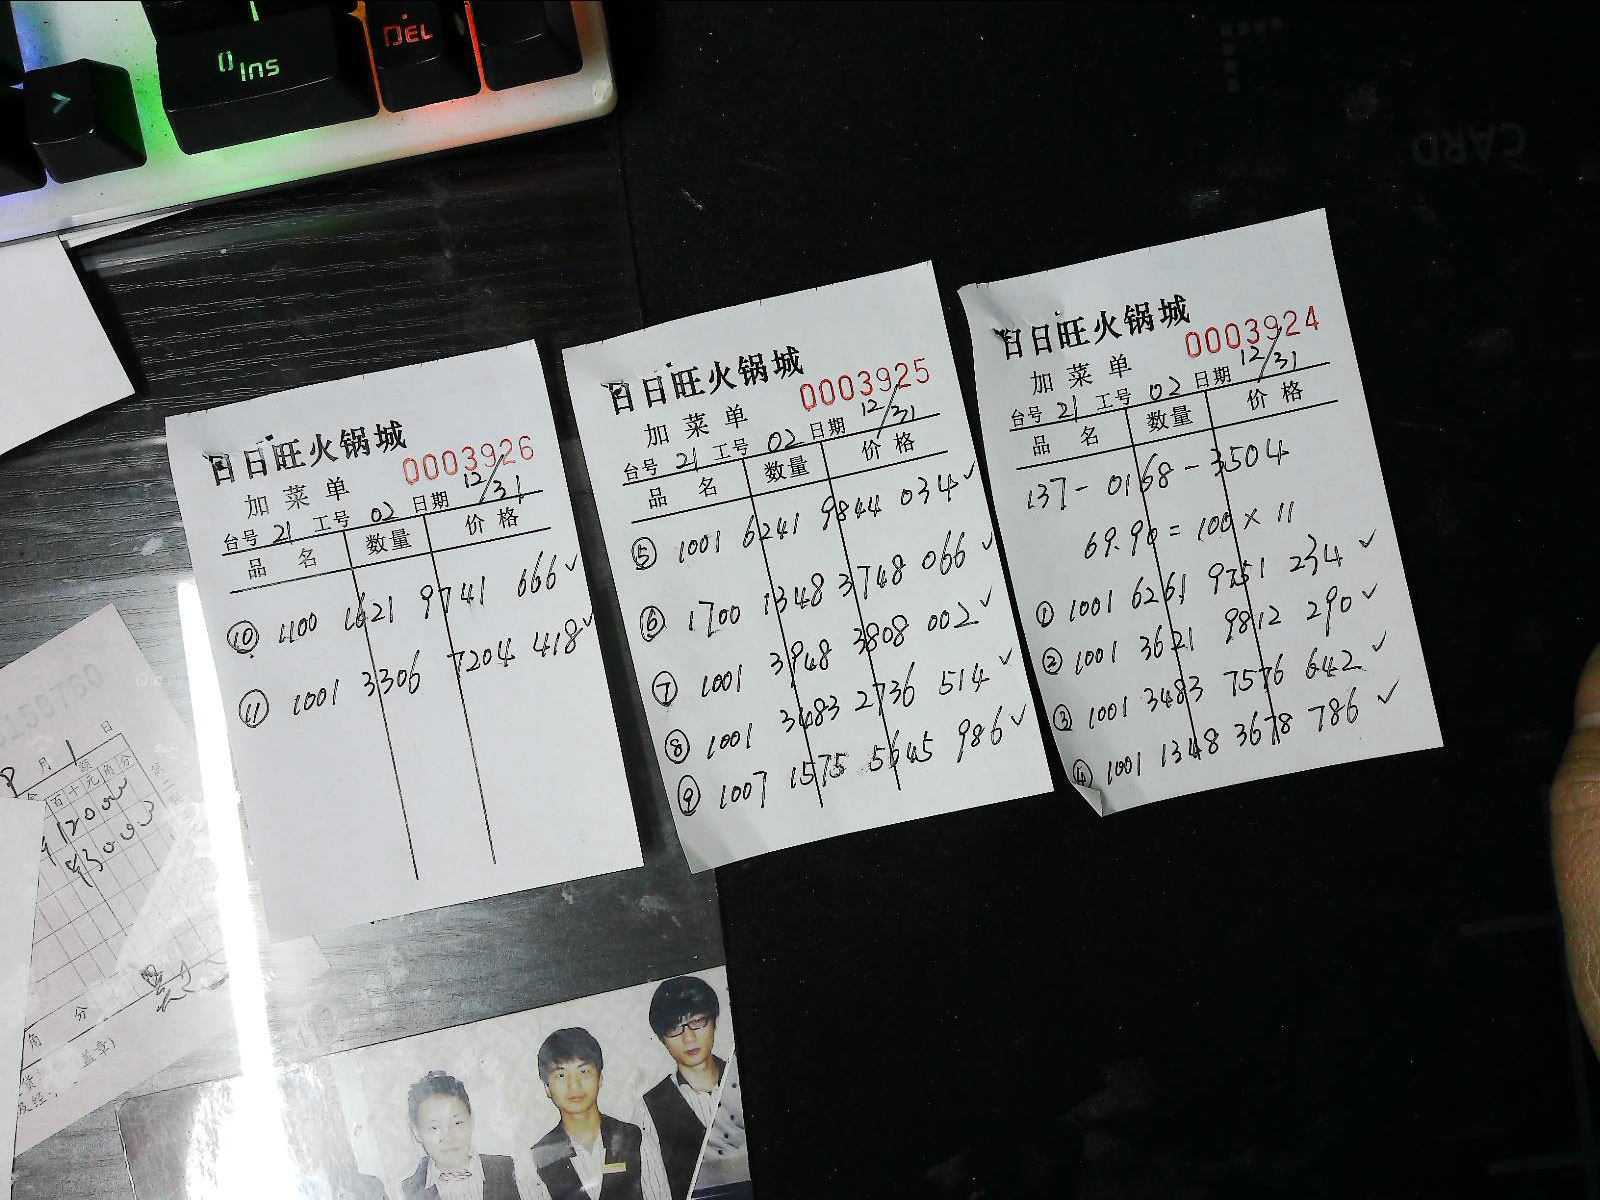 0 Ins
DEL
CARD
日日旺火锅城
0003926
加菜单
台号 21 工号 02 日期 12/31
品 名 数量 价 格
⑩ 1100 1621 9741 666 ✓
⑪ 1001 3306 7204 418 ✓
日日旺火锅城
0003925
加菜单
台号 21 工号 02 日期 12/31
品 名 数量 价 格
⑤ 1001 6241 9844 034 ✓
⑥ 1700 1348 3748 066 ✓
⑦ 1001 3948 3808 002 ✓
⑧ 1001 3483 2736 514 ✓
⑨ 1007 1575 5645 986 ✓
日日旺火锅城
0003924
加菜单
台号 21 工号 02 日期 12/31
品 名 数量 价 格
137-0168-3504
69.90=100×11
① 1001 6261 9751 234 ✓
② 1001 3621 9812 290 ✓
③ 1001 3483 7576 642 ✓
④ 1001 1348 3678 786 ✓
月 1 日
百十元角分
角 分
盖章)